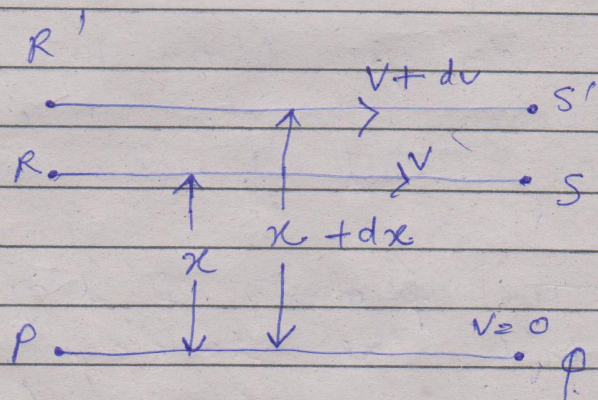 R'
V + dv
S'
R
V
S
x
x + dx
P
V = 0
Q